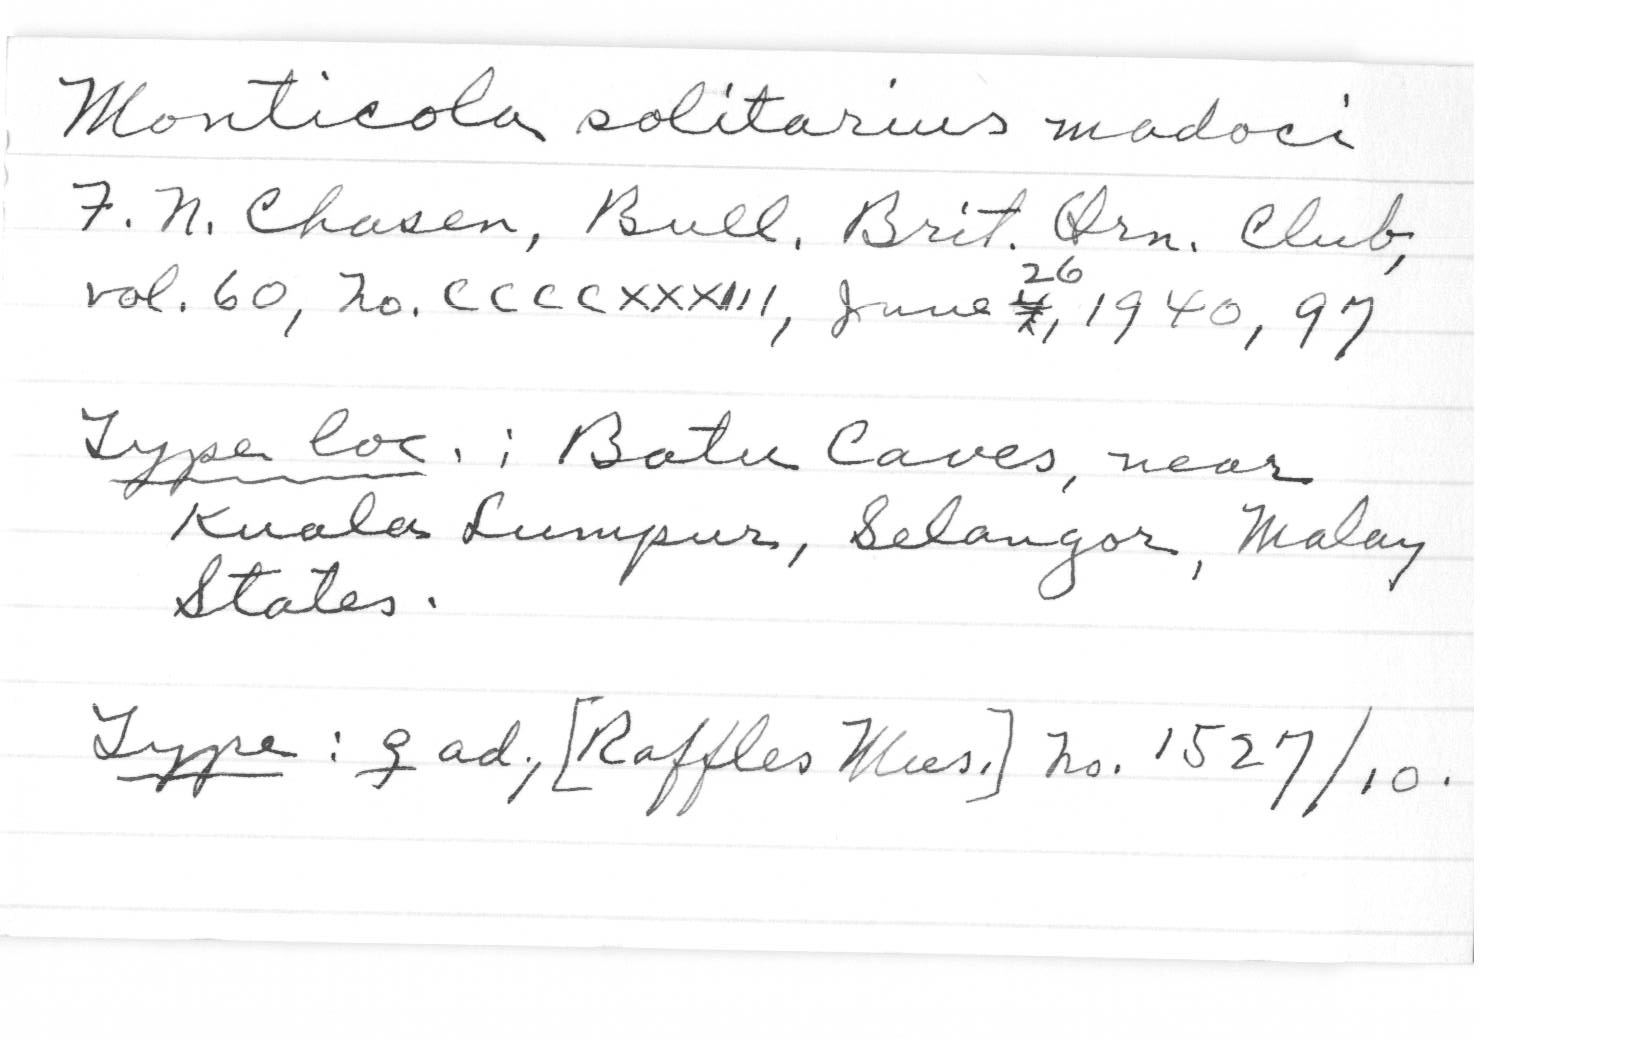 Monticola solitarius madoci
F. N. Chasen, Bull. Brit. Orn. Club,
vol. 60, no. CCCCXXXIII, June 26, 1940, 97
Type loc. ; Batu Caves, near
Kuala Lumpur, Selangor, Malay
States.
Type : ♀ ad., [Raffles Mus.] no. 1527/10.